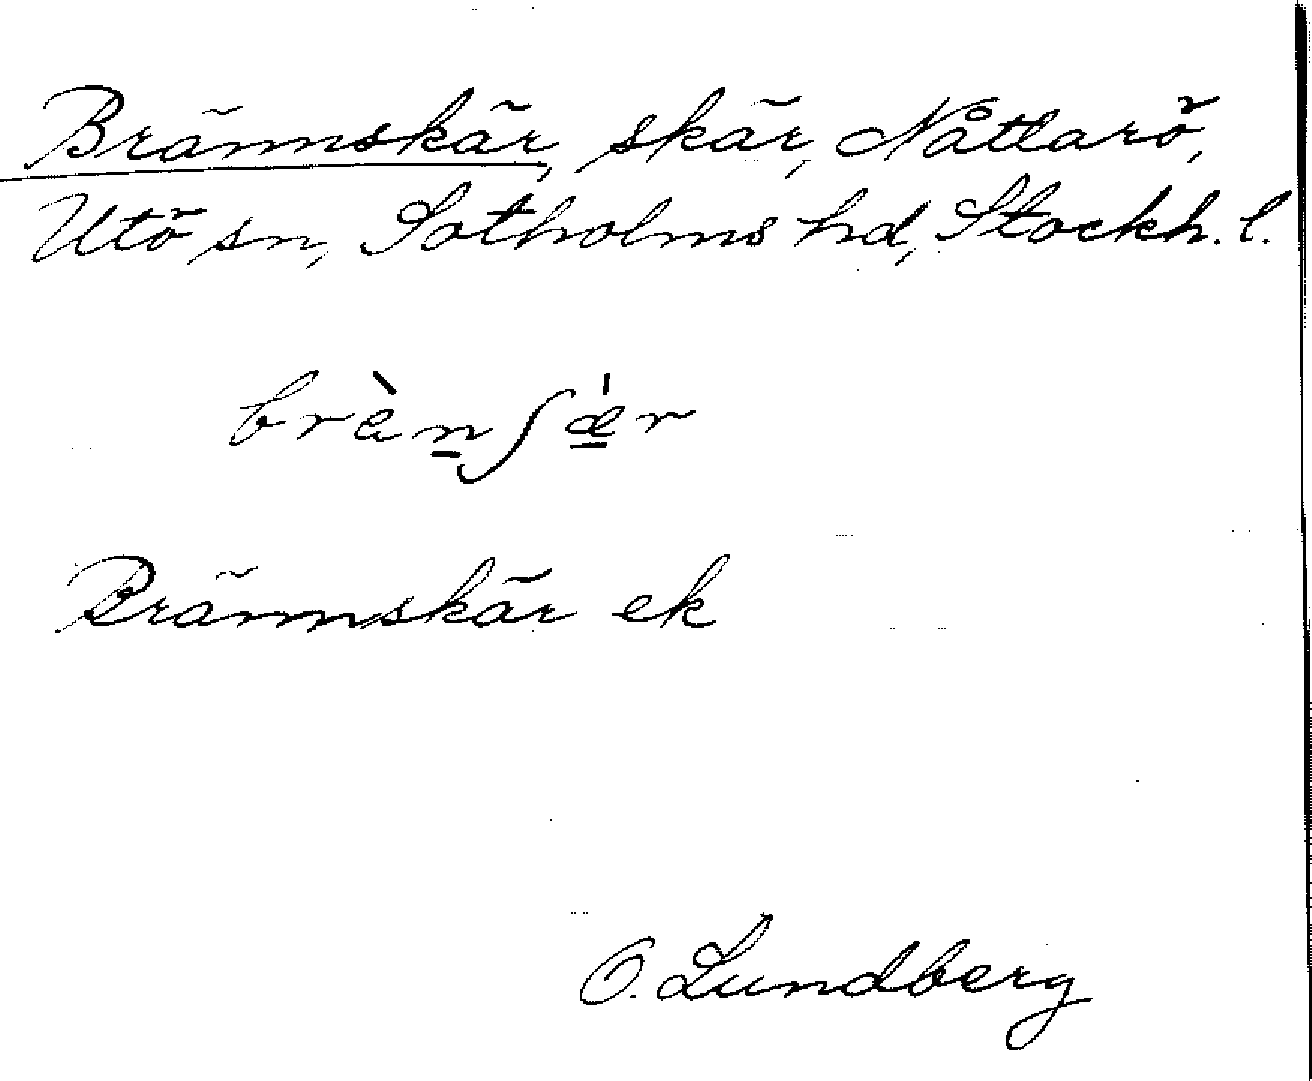 Brännskär, skär, Nåttarö,
Utö sn, Sotholms hd, Stockh. l.
brèn̲ʃæ̲̍r
Brännskär ek
O. Lundberg